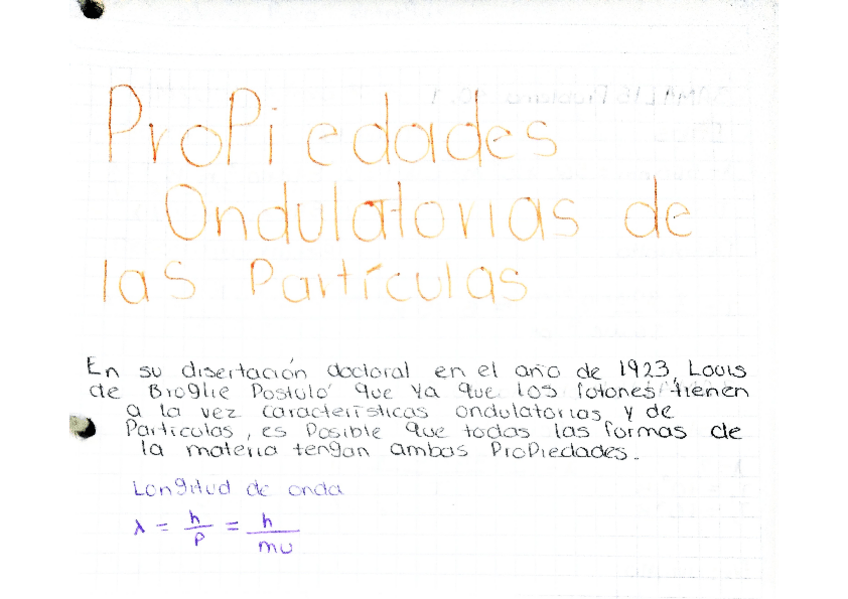 ProPiedades
Ondulatorias de
las Partículas
En su disertación doctoral en el año de 1923, Louis
de Broglie Postuló que ya que los fotones tienen
a la vez características ondulatorias y de
Partículas, es Posible que todas las formas de
la materia tengan ambas ProPiedades.
Longitud de onda
λ = h/p = h/mv